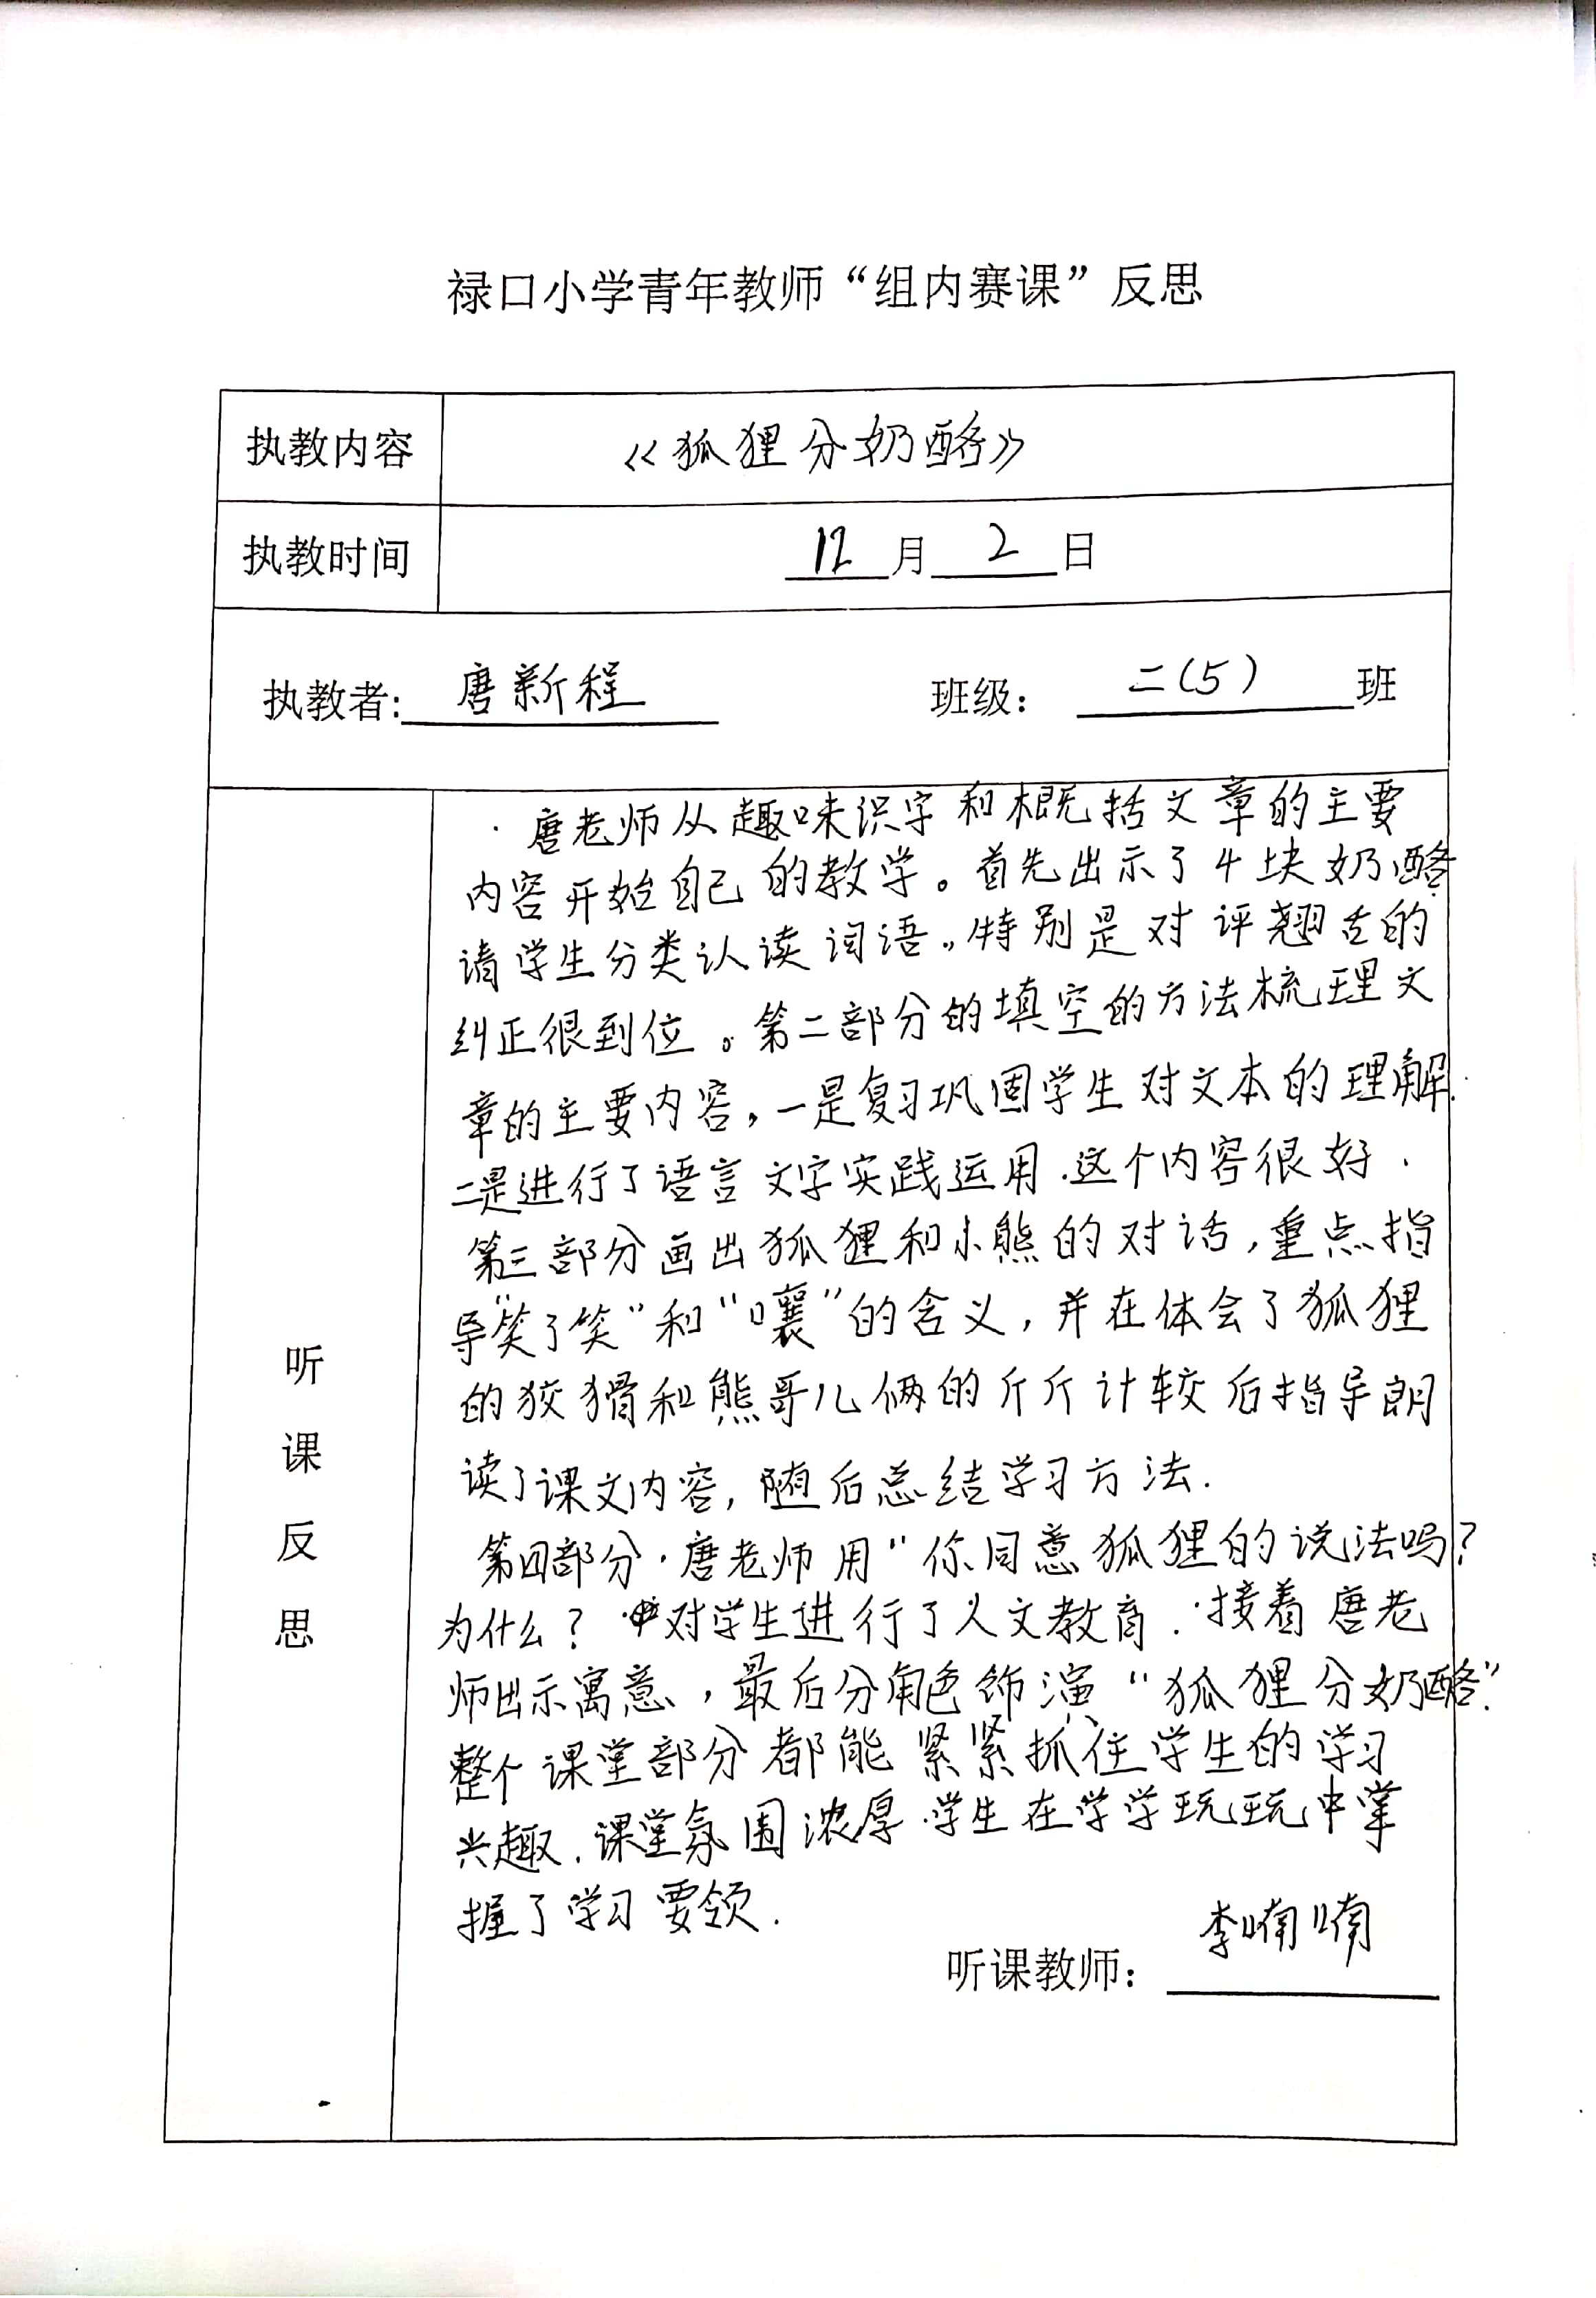 禄口小学青年教师“组内赛课”反思
执教内容 《狐狸分奶酪》
执教时间 12月2日
执教者:唐新程 班级：二(5)班
听课反思
唐老师从趣味识字和概括文章的主要
内容开始自己的教学。首先出示了4块奶酪
请学生分类认读词语。特别是对评翘舌的
纠正很到位。第二部分的填空的方法梳理文
章的主要内容，一是复习巩固学生对文本的理解.
二是进行了语言文字实践运用.这个内容很好.
第三部分画出狐狸和小熊的对话,重点指
导“笑了笑”和“嚷”的含义,并在体会了狐狸
的狡猾和熊哥儿俩的斤斤计较后指导朗
读了课文内容,随后总结学习方法.
第四部分.唐老师用“你同意狐狸的说法吗?
为什么?对学生进行了人文教育.接着唐老
师出示寓意,最后分角色饰演“狐狸分奶酪”.
整个课堂部分都能紧紧抓住学生的学习
兴趣.课堂氛围浓厚.学生在学学玩玩中掌
握了学习要领.
听课教师：李喃喃